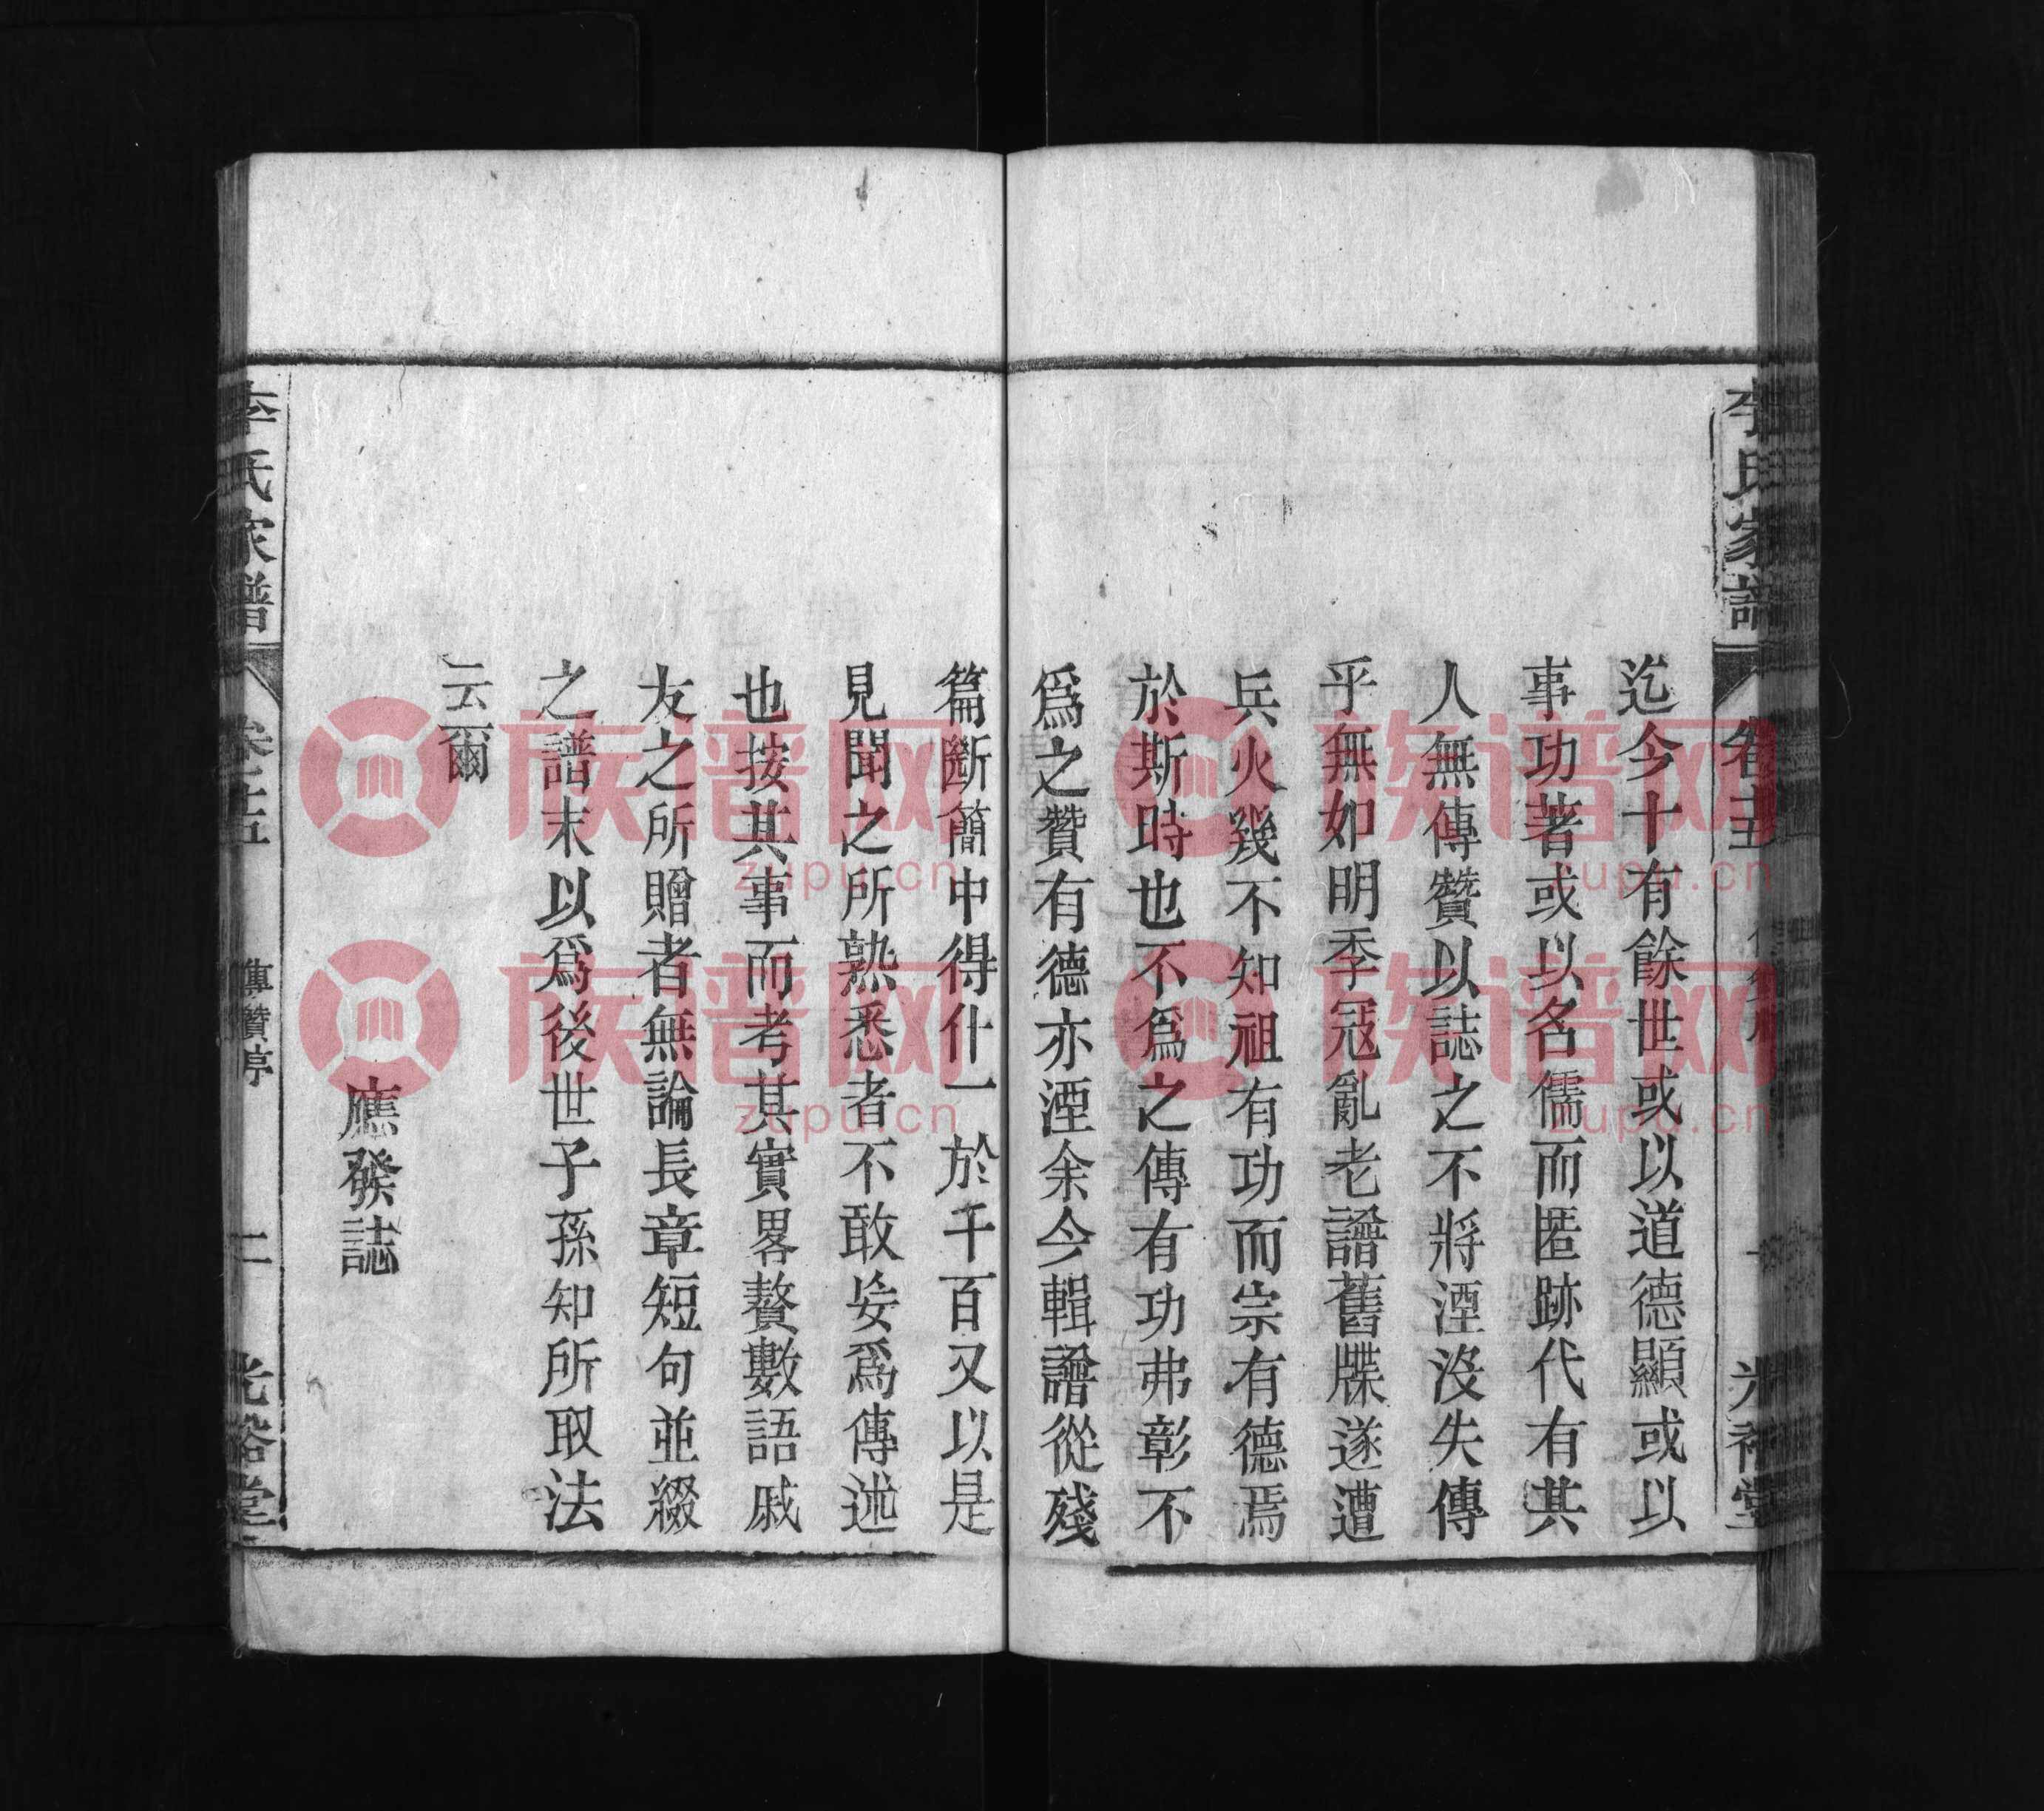 李氏家譜
卷五
光裕堂
迄今十有餘世或以道德顯或以
事功著或以名儒而匿跡代有其
人無傳贊以誌之不將湮沒失傳
乎無如明季冦亂老譜舊牒遂遭
兵火幾不知祖有功而宗有德焉
於斯時也不爲之傳有功弗彰不
爲之贊有德亦湮余今輯譜從殘
篇斷簡中得什一於千百又以是
見聞之所熟悉者不敢妄爲傳述
也按其事而考其實畧贅數語戚
友之所贈者無論長章短句並綴
之譜末以爲後世子孫知所取法
云爾
應發誌
李氏家譜
卷五
傳贊序
二
光裕堂
族谱网
zupu.cn
族谱网
zupu.cn
族谱网
zupu.cn
族谱网
zupu.cn